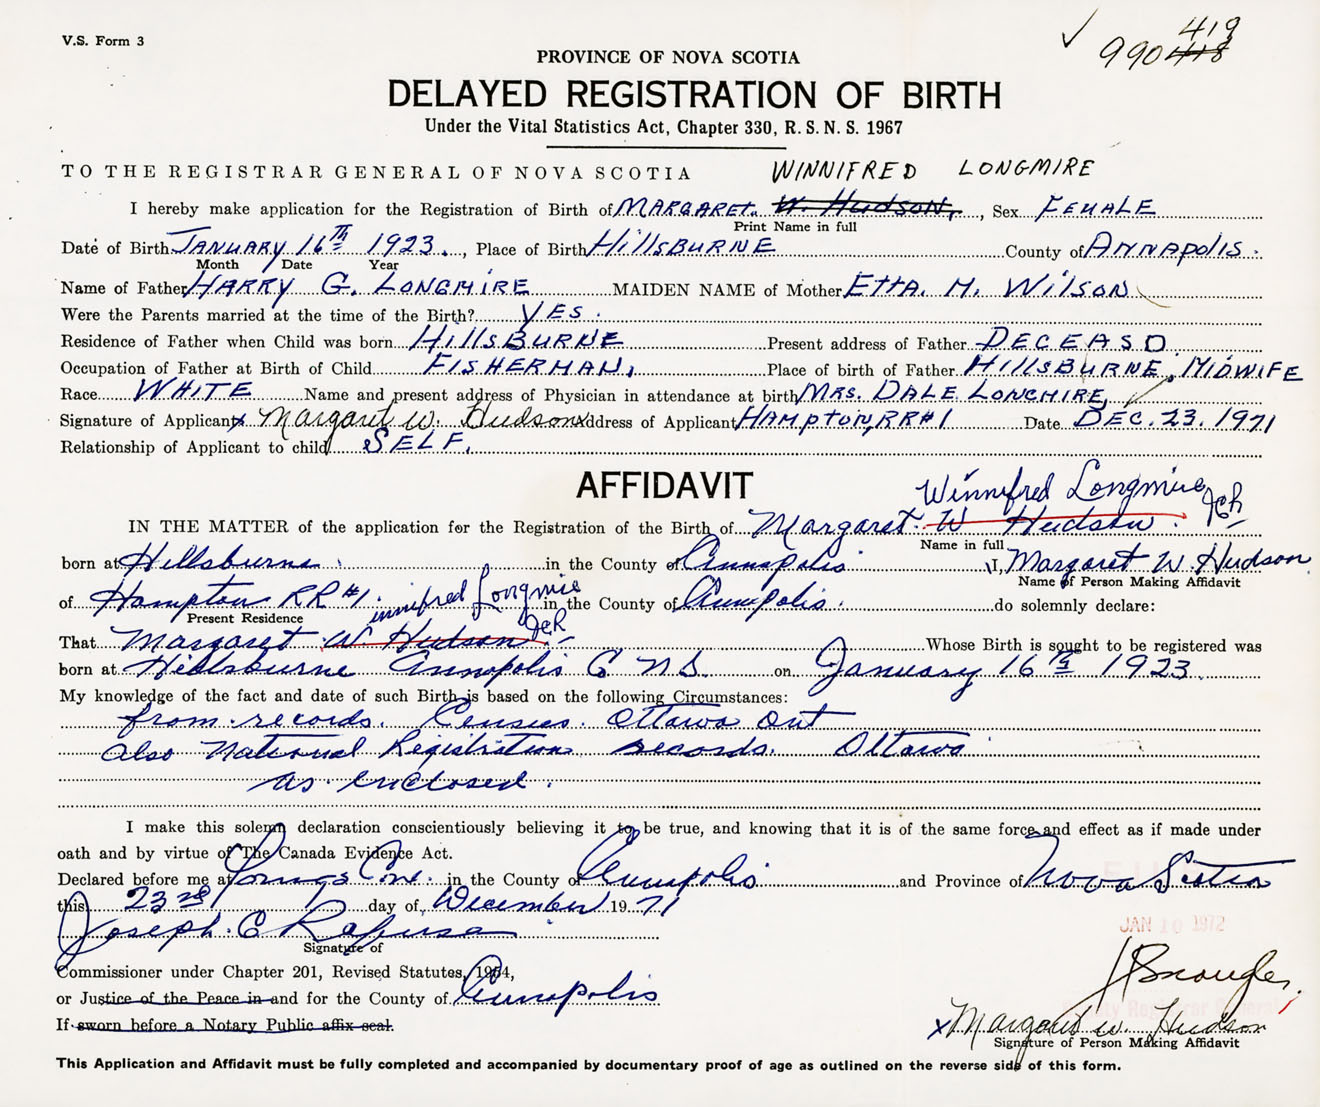 V.S. Form 3
✓ 990 418 419
PROVINCE OF NOVA SCOTIA
DELAYED REGISTRATION OF BIRTH
Under the Vital Statistics Act, Chapter 330, R. S. N. S. 1967
TO THE REGISTRAR GENERAL OF NOVA SCOTIA WINNIFRED LONGMIRE
I hereby make application for the Registration of Birth of MARGARET. W. HUDSON, , Sex FEMALE
Print Name in full
Date of Birth JANUARY 16TH 1923. , Place of Birth HillsBURNE County of ANNAPOLIS.
Month Date Year
Name of Father HARRY G. LONGMIRE MAIDEN NAME of Mother ETTA. M. WILSON
Were the Parents married at the time of the Birth? YES.
Residence of Father when Child was born HillsBURNE Present address of Father DECEASD
Occupation of Father at Birth of Child FISHERMAN. Place of birth of Father HillsBURNE, MIDWIFE
Race WHITE Name and present address of Physician in attendance at birth MRS. DALE LONGMIRE,
Signature of Applicant x Margaret W. Hudson Address of Applicant HAMPTON, RR#1 Date DEC. 23. 1971
Relationship of Applicant to child SELF.
AFFIDAVIT
Winnifred Longmire
IN THE MATTER of the application for the Registration of the Birth of Margaret W Hudson. JCR
Name in full
born at Hillsburne in the County of Annapolis I, Margaret W Hudson
Name of Person Making Affidavit
of Hampton RR#1. in the County of Annapolis. do solemnly declare:
Present Residence
innifred Longmire
That Margaret W Hudson JCR Whose Birth is sought to be registered was
born at Hillsburne Annapolis C N.S. on January 16TH 1923
My knowledge of the fact and date of such Birth is based on the following Circumstances:
from records. Censies. Ottawa Ont
also National Registration records. Ottawa
as enclosed.
I make this solemn declaration conscientiously believing it to be true, and knowing that it is of the same force and effect as if made under
oath and by virtue of The Canada Evidence Act.
Declared before me at Youngs Cove. in the County of Annapolis and Province of Nova Scotia
this 23rd day of December 1971
JAN 10 1972
Joseph. C
Signature of
Commissioner under Chapter 201, Revised Statutes, 1954,
or Justice of the Peace in and for the County of Annapolis
If sworn before a Notary Public affix seal.
Deputy Registrar General
x Margaret W. Hudson
Signature of Person Making Affidavit
This Application and Affidavit must be fully completed and accompanied by documentary proof of age as outlined on the reverse side of this form.